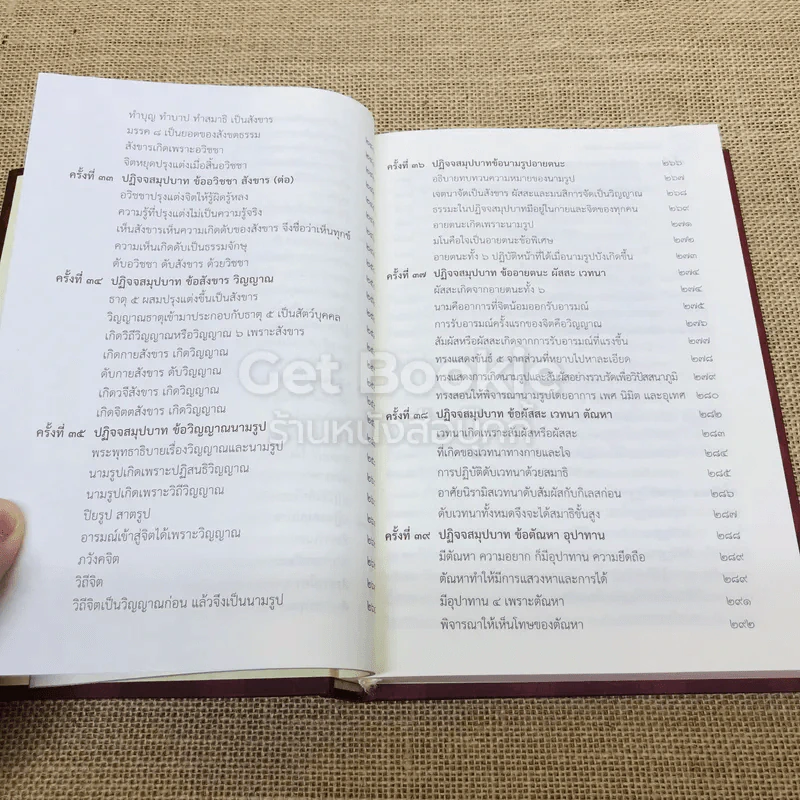 ทำบุญ ทำบาป ทำสมาธิ เป็นสังขาร
มรรค ๘ เป็นยอดของสังขตธรรม
สังขารเกิดเพราะอวิชชา
จิตหยุดปรุงแต่งเมื่อสิ้นอวิชชา
ครั้งที่ ๓๓ ปฏิจจสมุปบาท ข้ออวิชชา สังขาร (ต่อ)
อวิชชาปรุงแต่งจิตให้รู้ผิดรู้หลง
ความรู้ที่ปรุงแต่งไม่เป็นความรู้จริง
เห็นสังขารเห็นความเกิดดับของสังขาร จึงชื่อว่าเห็นทุกข์
ความเห็นเกิดดับเป็นธรรมจักษุ
ดับอวิชชา ดับสังขาร ด้วยวิชชา
ครั้งที่ ๓๔ ปฏิจจสมุปบาท ข้อสังขาร วิญญาณ
ธาตุ ๕ ผสมปรุงแต่งขึ้นเป็นสังขาร
วิญญาณธาตุเข้ามาประกอบกับธาตุ ๕ เป็นสัตว์บุคคล
เกิดวิถีวิญญาณหรือวิญญาณ ๖ เพราะสังขาร
เกิดกายสังขาร เกิดวิญญาณ
ดับกายสังขาร ดับวิญญาณ
เกิดวจีสังขาร เกิดวิญญาณ
เกิดจิตตสังขาร เกิดวิญญาณ
ครั้งที่ ๓๕ ปฏิจจสมุปบาท ข้อวิญญาณนามรูป
พระพุทธาธิบายเรื่องวิญญาณและนามรูป
นามรูปเกิดเพราะปฏิสนธิวิญญาณ
นามรูปเกิดเพราะวิถีวิญญาณ
ปิยรูป สาตรูป
อารมณ์เข้าสู่จิตได้เพราะวิญญาณ
ภวังคจิต
วิถีจิต
วิถีจิตเป็นวิญญาณก่อน แล้วจึงเป็นนามรูป
ครั้งที่ ๓๖ ปฏิจจสมุปบาทข้อนามรูปอายตนะ ๒๖๖
อธิบายทบทวนความหมายของนามรูป ๒๖๗
เจตนาจัดเป็นสังขาร ผัสสะและมนสิการจัดเป็นวิญญาณ ๒๖๘
ธรรมะในปฏิจจสมุปบาทมีอยู่ในกายและจิตของทุกคน ๒๖๙
อายตนะเกิดเพราะนามรูป ๒๗๑
มโนคือใจเป็นอายตนะข้อพิเศษ ๒๗๒
อายตนะทั้ง ๖ ปฏิบัติหน้าที่ได้เมื่อนามรูปบังเกิดขึ้น ๒๗๓
ครั้งที่ ๓๗ ปฏิจจสมุปบาท ข้ออายตนะ ผัสสะ เวทนา ๒๗๔
ผัสสะเกิดจากอายตนะทั้ง ๖
นามคืออาการที่จิตน้อมออกรับอารมณ์ ๒๗๕
การรับอารมณ์ครั้งแรกของจิตคือวิญญาณ ๒๗๖
สัมผัสหรือผัสสะเกิดจากการรับอารมณ์ที่แรงขึ้น ๒๗๗
ทรงแสดงขันธ์ ๕ จากส่วนที่หยาบไปหาละเอียด ๒๗๘
ทรงแสดงการเกิดนามรูป สัมผัสอย่างรวบรัดเพื่อวิปัสสนาภูมิ ๒๗๙
ทรงสอนให้พิจารณานามรูปโดยอาการ เพศ นิมิต และอุเทศ ๒๘๐
ครั้งที่ ๓๘ ปฏิจจสมุปบาท ข้อผัสสะ เวทนา ตัณหา ๒๘๒
เวทนาเกิดเพราะสัมผัสหรือผัสสะ ๒๘๓
ที่เกิดของเวทนาทางกายและใจ ๒๘๔
การปฏิบัติดับเวทนาด้วยสมาธิ ๒๘๕
อาศัยนิรามิสเวทนาดับสัมผัสกับกิเลสก่อน ๒๘๖
ดับเวทนาทั้งหมดจึงจะได้สมาธิขั้นสูง ๒๘๗
ครั้งที่ ๓๙ ปฏิจจสมุปบาท ข้อตัณหา อุปาทาน ๒๘๘
มีตัณหา ความอยาก ก็มีอุปาทาน ความยึดถือ ๒๘๙
ตัณหาทำให้มีการแสวงหาและการได้ ๒๘๙
มีอุปาทาน ๔ เพราะตัณหา ๒๙๑
พิจารณาให้เห็นโทษของตัณหา ๒๙๒
Get Bookie
ร้านหนังสือมุกดา